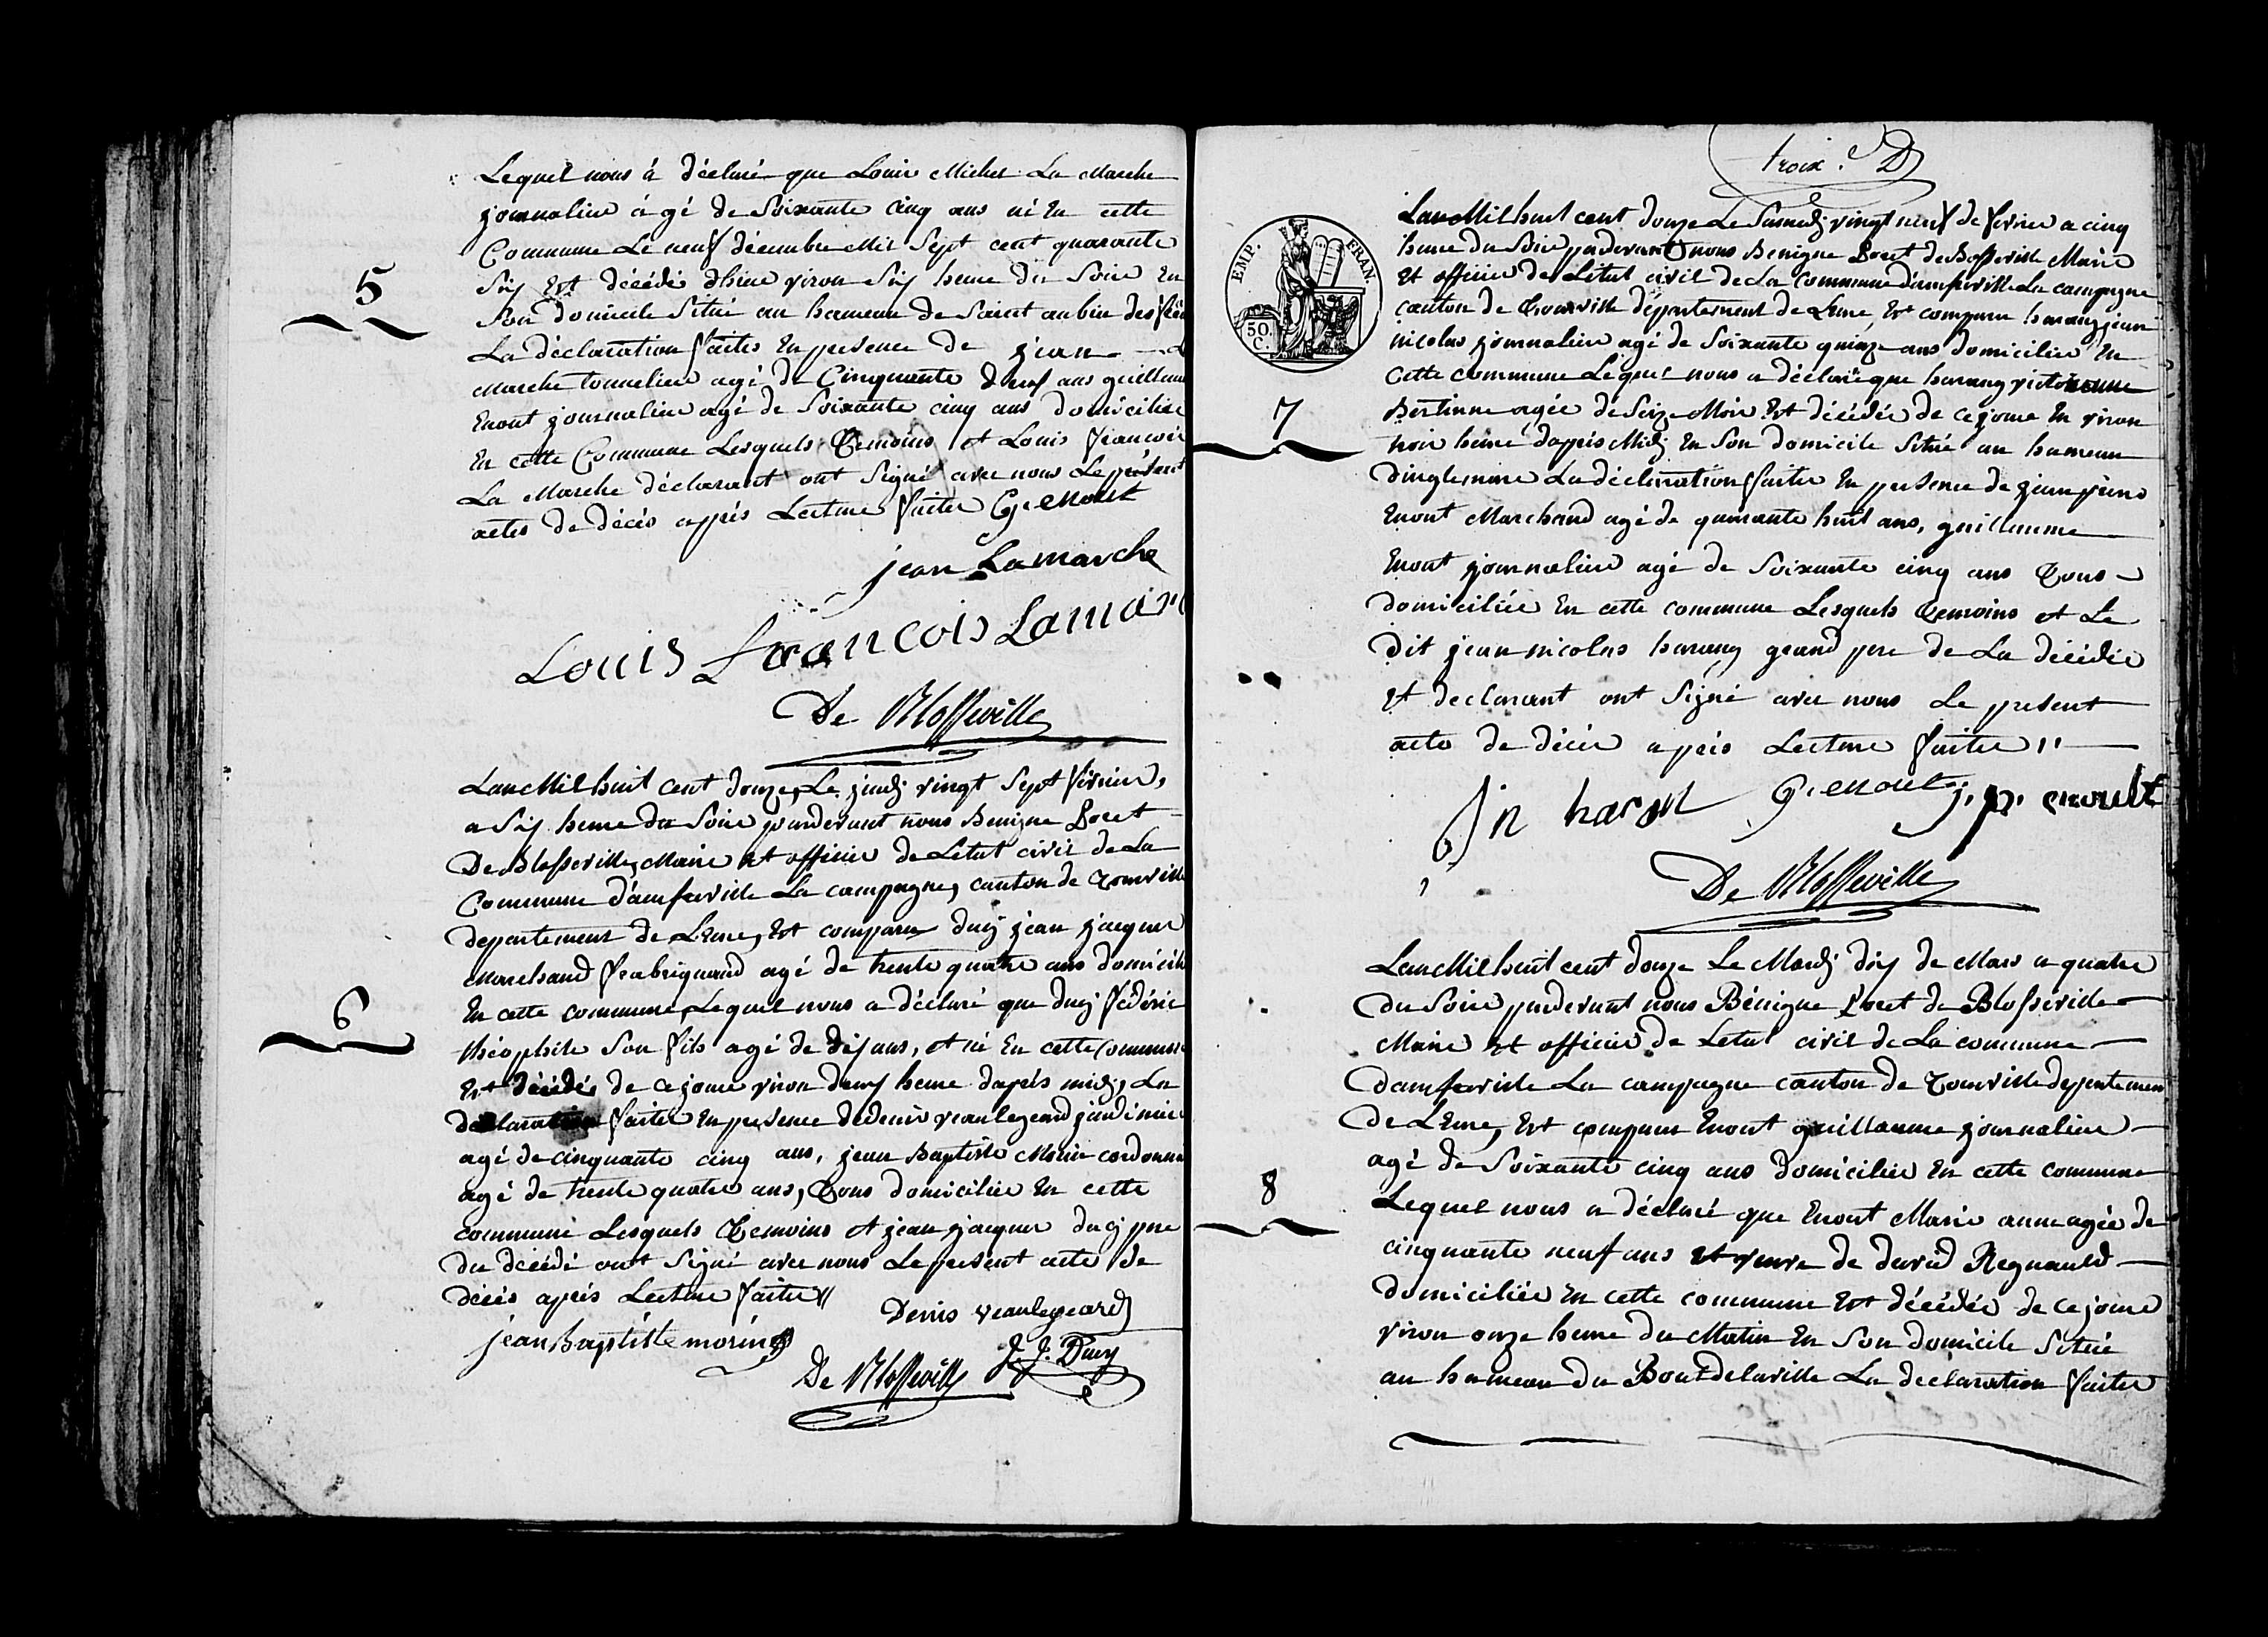 Lequel nous à déclaré que Louis Michel La Marche
journalier âgé de Soixante cinq ans né En cette
Commune Le neuf décembre Mil Sept cent quarante
Six Est décédé d'hier viron Six heure du Soire En
Son domicile Situé au hameau de Saint aubin des
La déclaration faites En presence de jean La
Marche tonnelier agé de Cinquante deux ans guillaume
Enout journalier agé de Soixante cinq ans domicilié
En cette Commune Lesquels Temoins et Louis François
La Marche déclarant ont Signé avec nous Le présent
actes de décès apprès Lecture faites G. enoult
5
jean Lamarche
Louis François Lamar
De Blosseville
Lan Mil huit cent douze, Le jeudi vingt Sept février,
a Six heure du Soire pardevant nous Benigne Poret
De Blosseville, Maire Et officier de Letat civil de La
Commune d'amfreville La campagne, canton de Tourville
departement de LEure, Est comparu duçy jean jacques
Marchand agé de trente quatre ans domicilié
En cette commune, Lequel nous a déclaré que duçy fédéric
théophile Son fils agé de dix ans, et né En cette Commune
Est décédé de ce joure viron deux heure daprès midy, La
declaration faites En presence de denis veaulegeard
agé de cinquante cinq ans, jean Baptiste Morin cordonnie
agé de trente quatre ans, Tous domicilié En cette
commune Lesquels Temoins et jean jacques duçy pere
du décédé ont Signé avec nous Le present acte de
décès après Lecture faites //
6
Denis veaulegeard
jean Baptiste morin
De Blosseville J. J. Ducy
troix. D
EMP. FRAN.
50. C.
Lan Mil huit cent douze Le Samedi vingt neuf de fevrier a cinq
heure du Soire pardevant nous Benigne Poret de Blosseville Maire
Et officier de Letat civil de La commune d'amfreville La campagne
canton de Tourville département de LEure, Est comparu harang jean
nicolas journalier agé de Soixante quinze ans domicilié En
cette commune Lequel nous a déclaré que harang
agée de Seize Mois Est décédée de ce joure En viron
trois heure d'après Midy En Son domicile Situé au hameau
dinglemare La déclaration faites En presence de jean pierre
Enout Marchand agé de quarante huit ans, guillaume
Enout journalier agé de Soixante cinq ans Tous
domiciliée En cette commune Lesquels Temoins et Le
Dit jean nicolas harang grand pere de La décédée
Et declarant ont Signé avec nous Le present
acte de décès après Lecture faites //
7
G. enoult j. p. enoult
De Blosseville
Lan Mil huit cent douze Le Mardi dix de Mars a quatre
du Soire pardevant nous Bénigne Poret de Blosseville
Maire Et officier de Letat civil de La commune
damfreville La campagne canton de Tourville departement
de LEure, Est comparu Enout guillaume journalier
agé de Soixante cinq ans domicilié En cette commune
Lequel nous a déclaré que Enout Marie anne agée de
cinquante neuf ans Et veuve de david Regnauld
domiciliée En cette commune Est décédée de ce joure
viron onze heure du Matin En Son domicile Situé
au hameau du Bout de laville La declaration faites
8